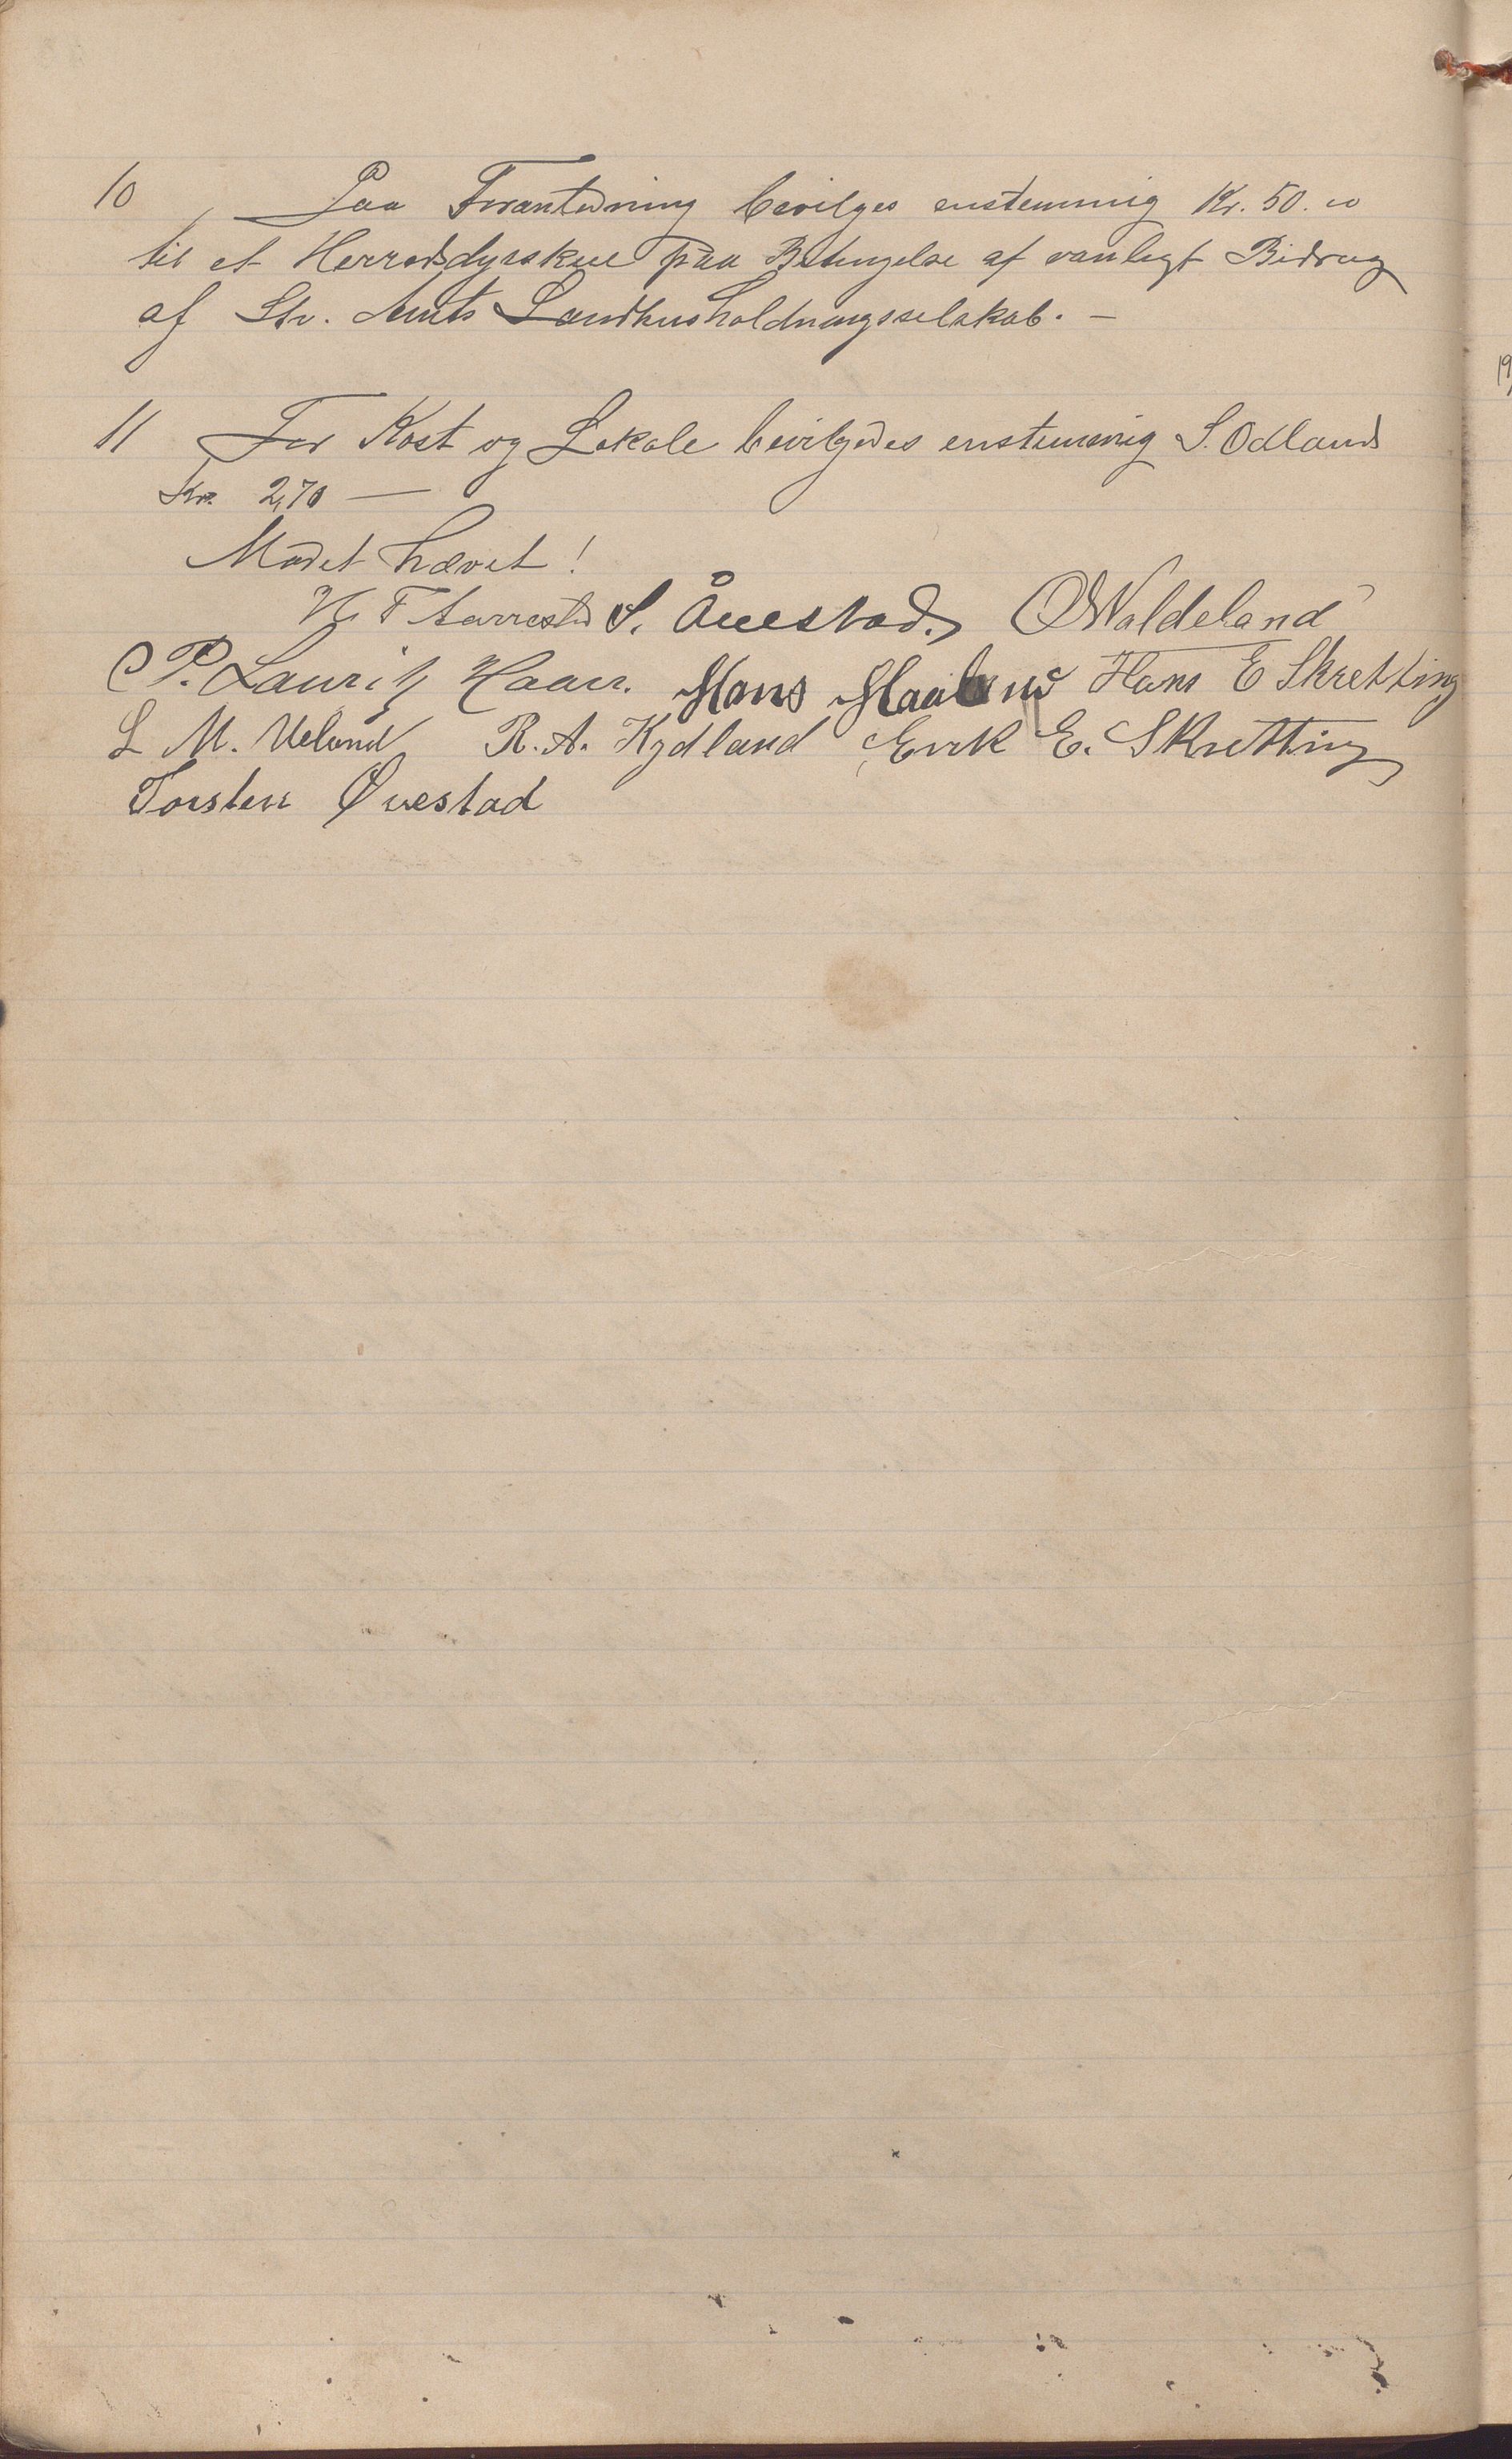 10 Paa Foranledning bevilges enstemmig Kr. 50.00
til et Herredsdyrskue paa Betingelse af vanligt Bidrag
af Stv. Amts Landhusholdningsselskab. –
11 For Kost og Lokale bevilgedes enstemmig S. Odland
Kr. 2,70 —
Mødet hævet!
H. T. Aarrestad S. Åuestad. O Waldeland
P. Lauritz Haarr. Hans Hans E Skretting
L M. Ueland R. A. Kydland Erik E. Skretting
Torsten Øvestad